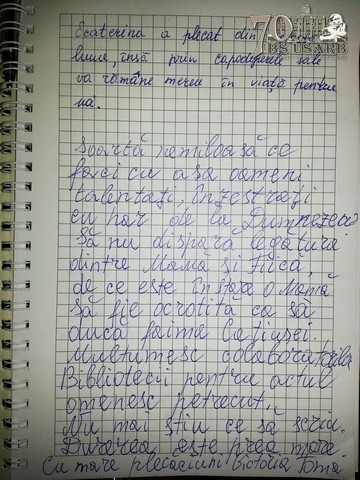 70 ANI
BȘ USARB
Ecaterina a plecat din
lume, însă prin capodoperele sale
va rămâne mereu în viață pentru
nă.
Soartă nemiloasă ce
faci cu așa oameni
talentați, înzestrați
cu har de la Dumnezeu
Să nu dispară legătura
dintre Mamă și Fiică,
de ce este în stare o Mamă
să fie ocrotită ca să
ducă faima Catiușei.
Mulțumesc colaboratorilor
Bibliotecii pentru actul
omenesc petrecut.
Nu mai știu ce să scriu.
Durerea este prea mare.
Cu mare plecăciuni Victoria Toma